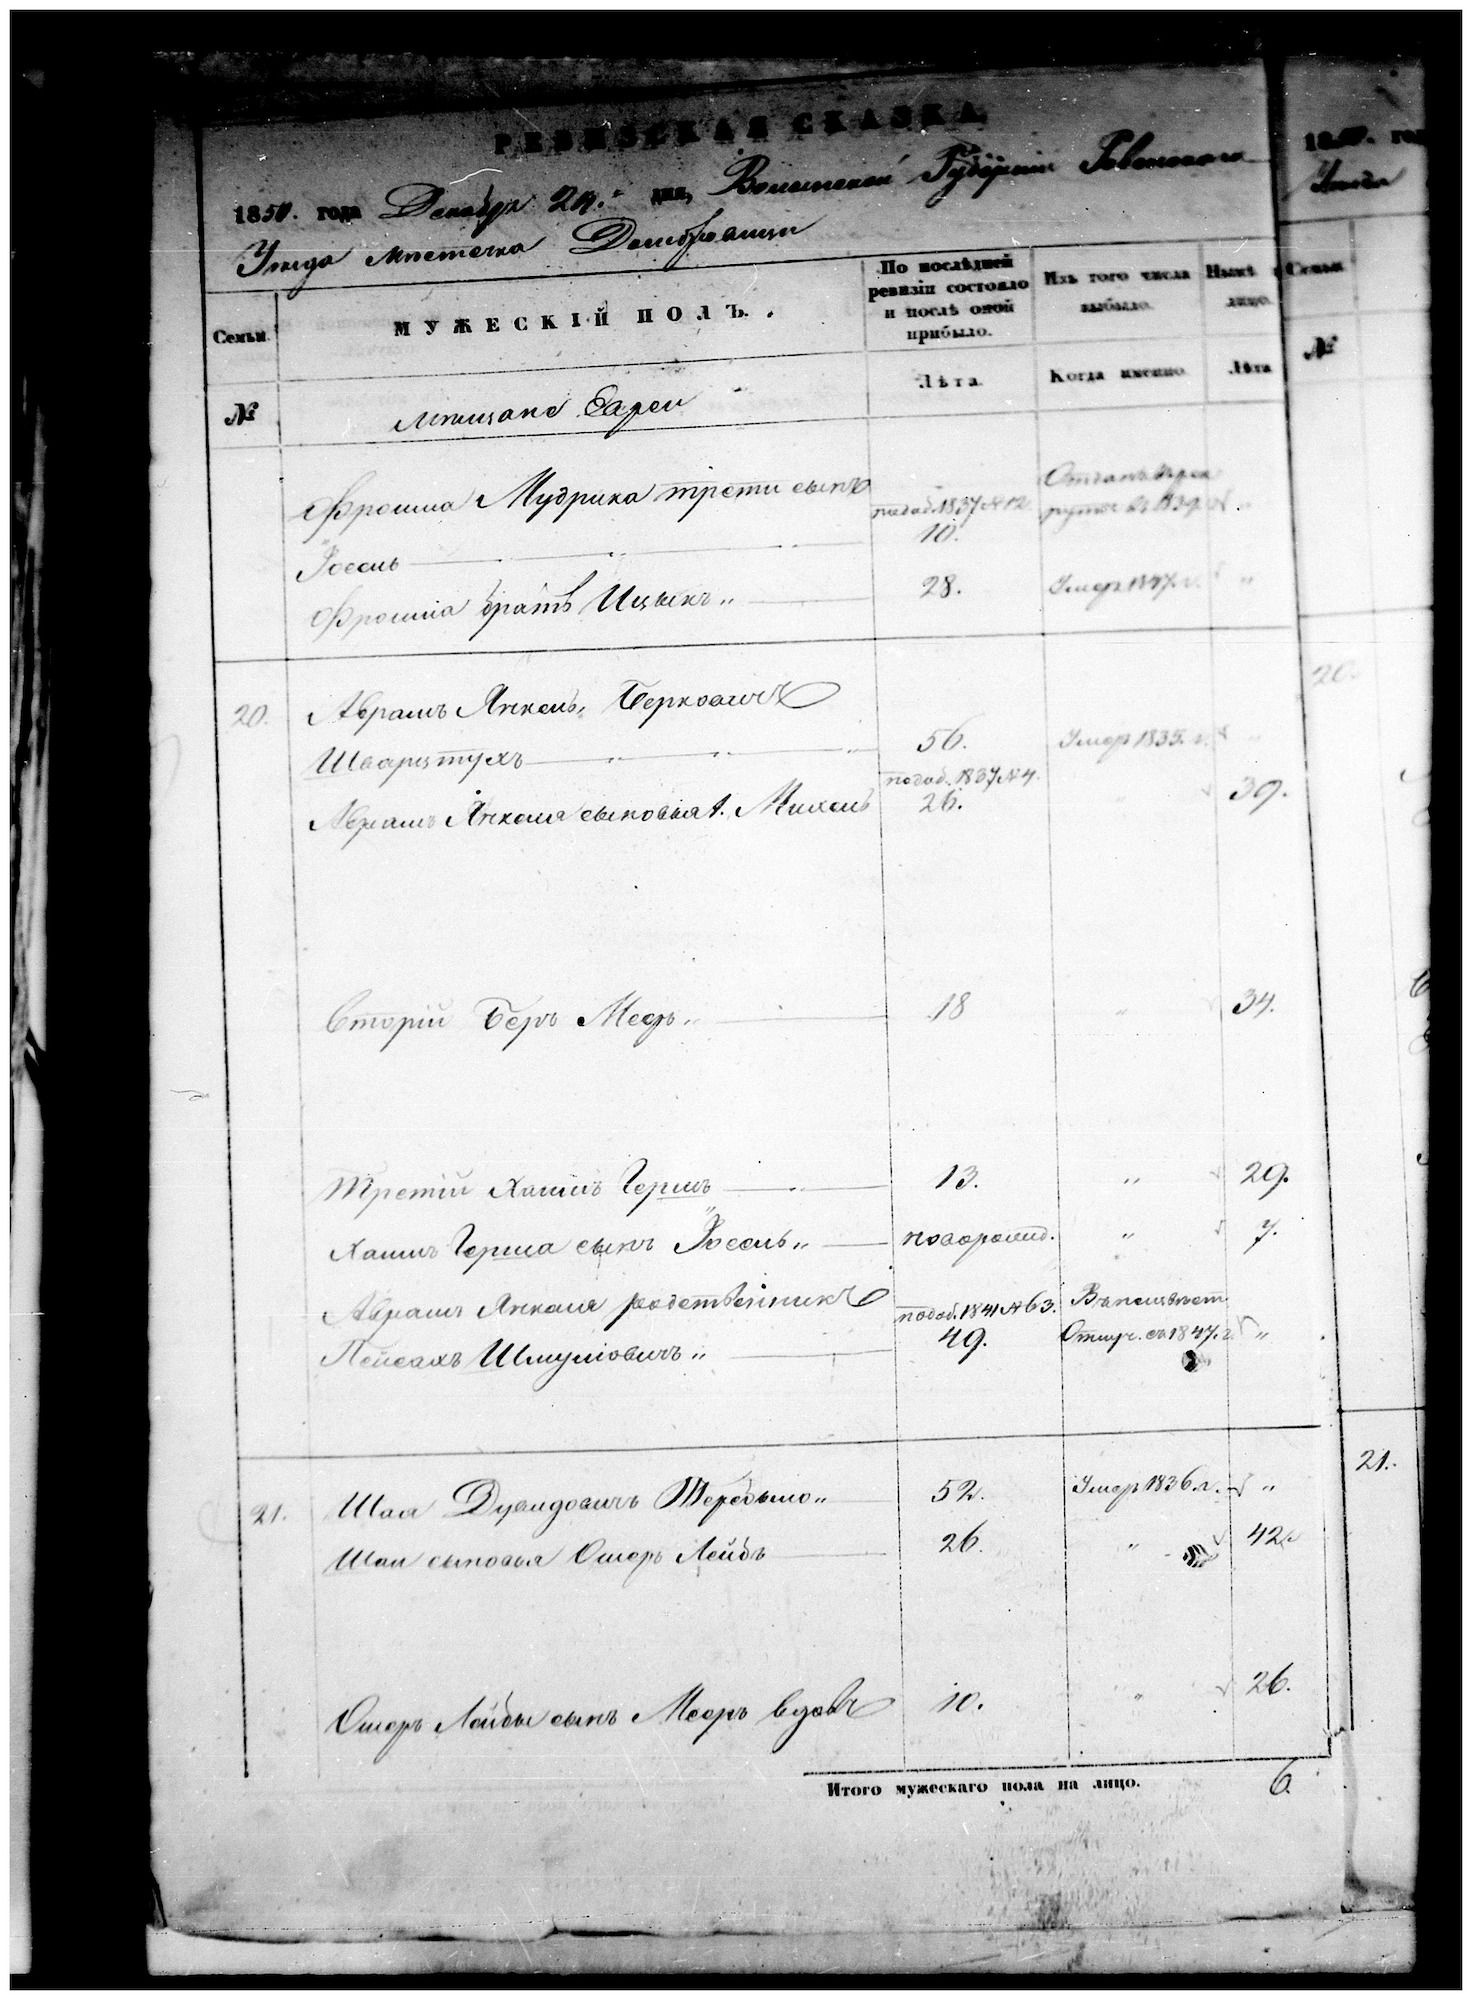 РЕВИЗСКАЯ СКАЗКА
1850. года Декабря 20. дня, Волынской Губернiи Ровенского
Уезда местечка Домбровицы
Семьи.
МУЖЕСКIЙ ПОЛЪ.
По послѣдней ревизіи состояло и послѣ оной прибыло.
Изъ того числа выбыло.
Нынѣ
лицо.
№
мещане Евреи
Лѣта.
Когда именно.
Лѣта
Фроима Мудрика трети сынъ
подоб. 1837 № 12.
Отданъ въ рек
Iосель
10.
руты въ 1839.
Фроима братъ Ицыкъ
28.
Умер 1847. г.
20. Абрамъ Янкель Берковичъ
Шварцтухъ
56.
Умер 1835. г.
Абрамъ Янкеля сыновья 1. Михель
подоб. 1837 № 4.
26.
39.
Вторiй Беръ Меер
18
34.
Третiй Хаимъ Герш
13.
29.
Хаимъ Герша сынъ Iосель
новорожд.
7.
Абрамъ Янкеля родственникъ
подоб. 1841 № 63.
Въ неизвѣст
Пейсахъ Шмулiовичъ
49.
Отлуч. съ 1847. г.
21. Шая Дувидовичъ Теребыло
52.
Умер 1836. г.
Шаи сыновья Ошеръ Лейбъ
26.
42.
Ошеръ Лейбы сынъ Мееръ вдовъ
10.
26.
Итого мужескаго пола на лицо.
6.
Уезда
Семьи
№
20.
21.